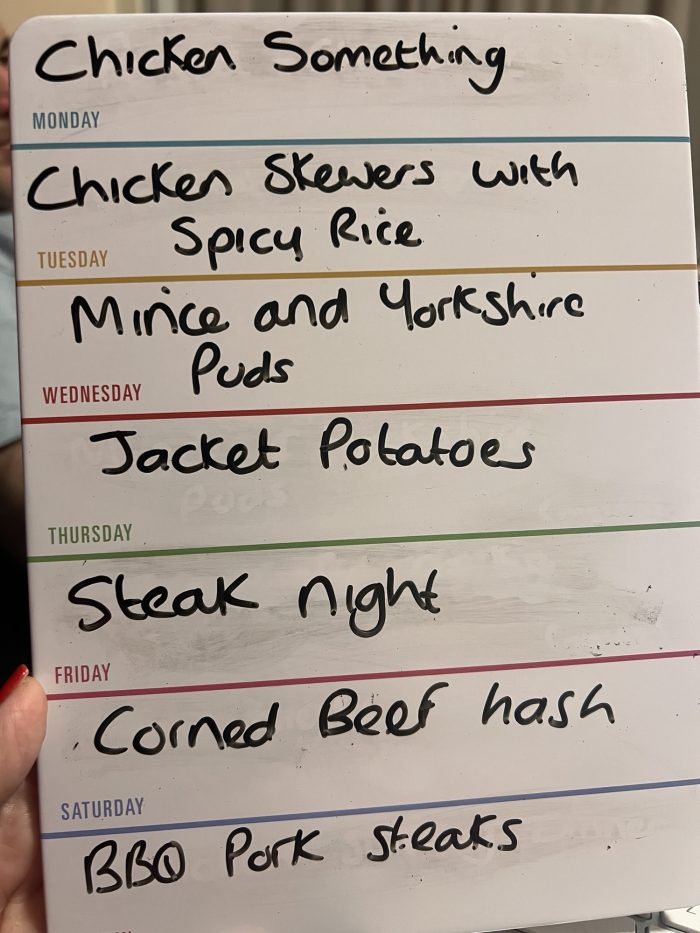 Chicken Something
MONDAY
Chicken Skewers with
Spicy Rice
TUESDAY
Mince and Yorkshire
Puds
WEDNESDAY
Jacket Potatoes
THURSDAY
Steak night
FRIDAY
Corned Beef hash
SATURDAY
BBQ Pork steaks